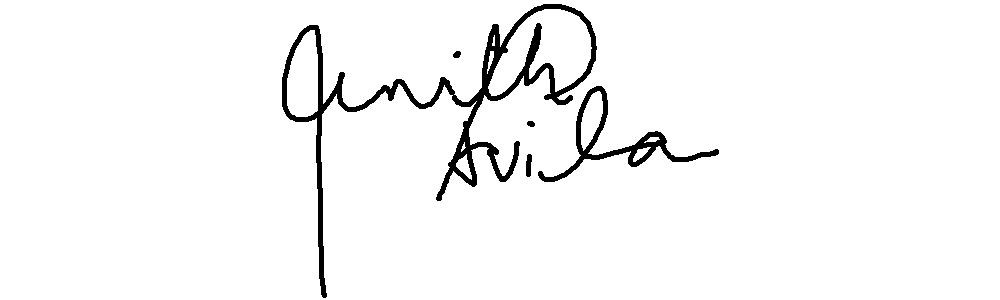 Jenith
Avila